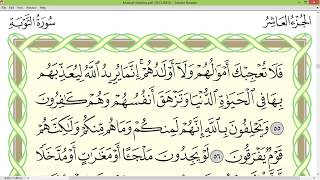 الجزء العاشر سورة التوبة
فَلَا تُعْجِبْكَ أَمْوَٰلُهُمْ وَلَآ أَوْلَٰدُهُمْ إِنَّمَا يُرِيدُ ٱللَّهُ لِيُعَذِّبَهُم
بِهَا فِي ٱلْحَيَوٰةِ ٱلدُّنْيَا وَتَزْهَقَ أَنفُسُهُمْ وَهُمْ كَٰفِرُونَ
٥٥ وَيَحْلِفُونَ بِٱللَّهِ إِنَّهُمْ لَمِنكُمْ وَمَا هُم مِّنكُمْ وَلَٰكِنَّهُمْ
قَوْمٌ يَفْرَقُونَ ٥٦ لَوْ يَجِدُونَ مَلْجَـًٔا أَوْ مَغَٰرَٰتٍ أَوْ مُدَّخَلًا